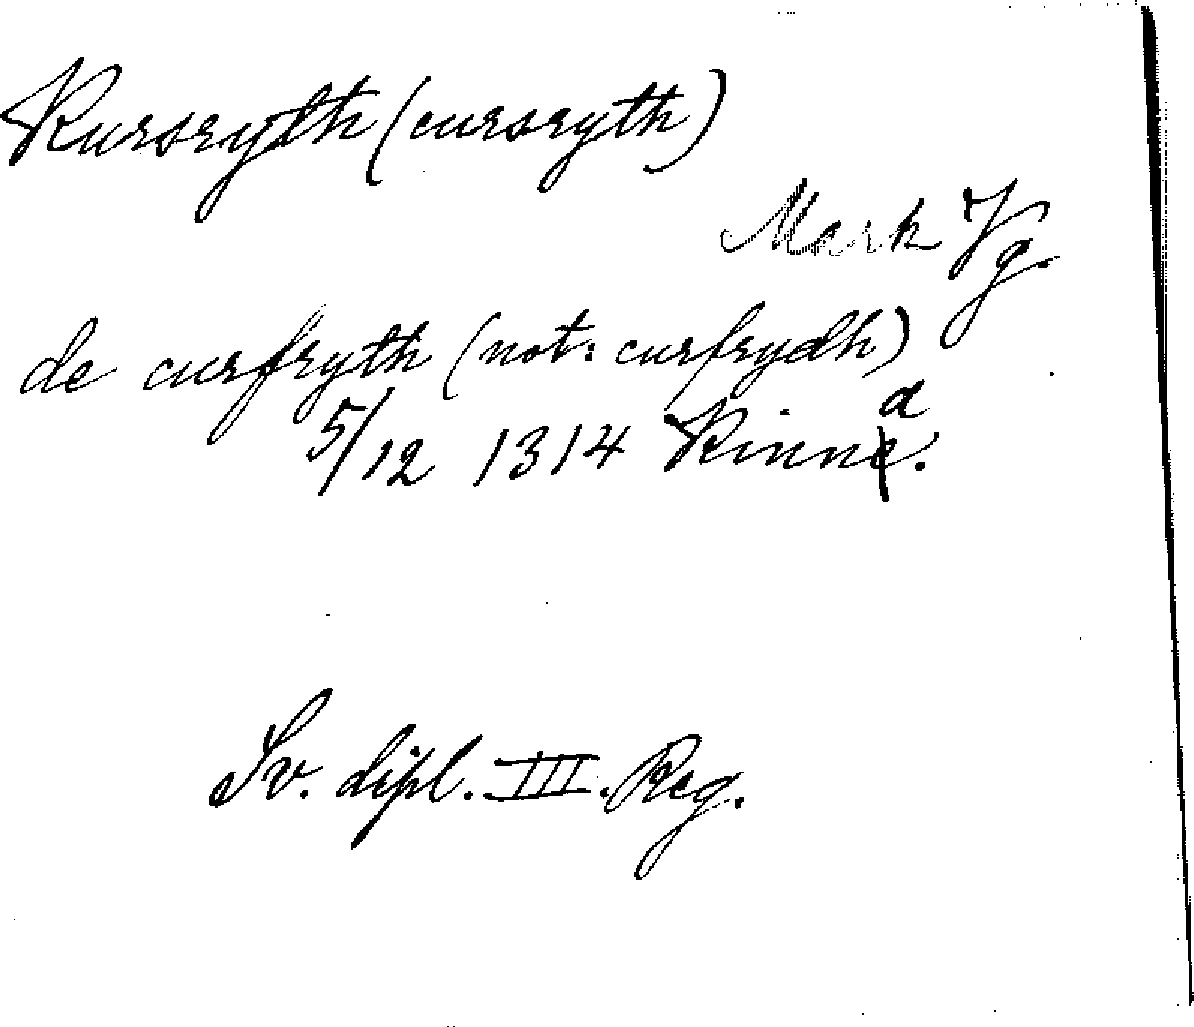 Kursryth (cursryth)
Mark Vg.
de cursryth (not: cursrydh)
5/12 1314 Kinna.
Sv. dipl. III. Reg.